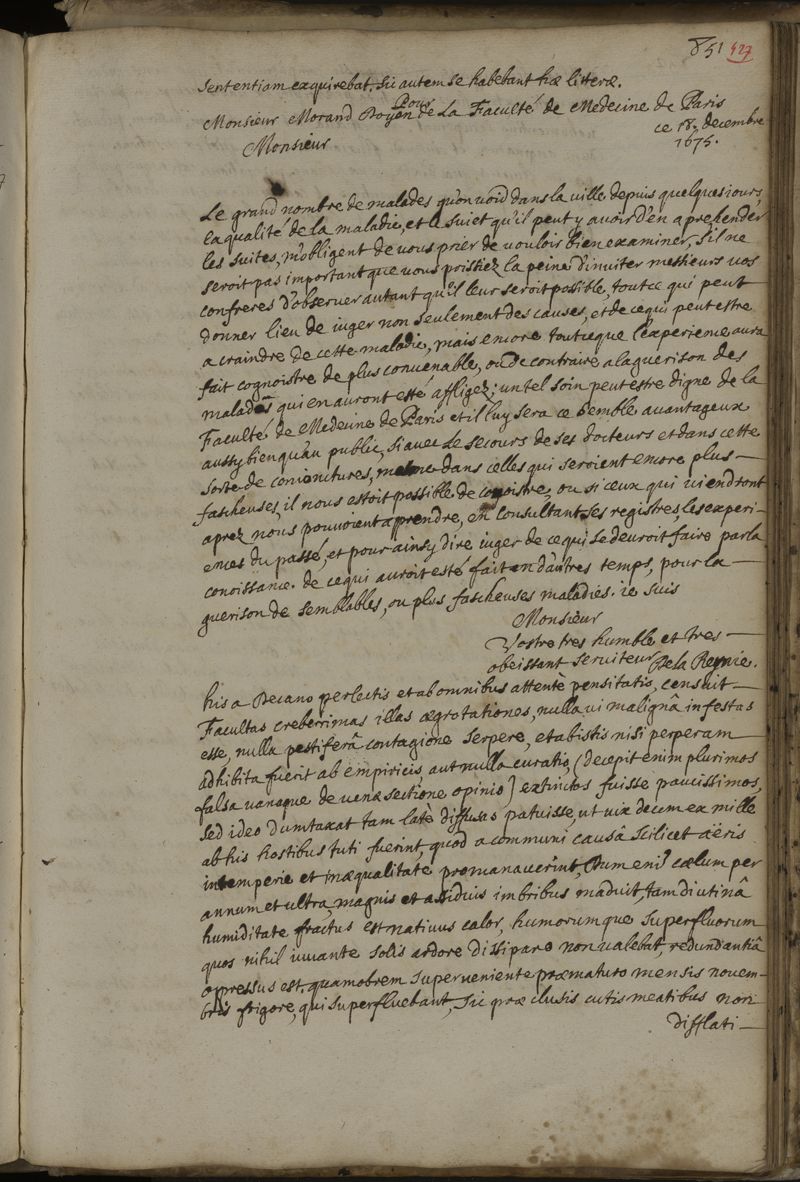 851 427
sententiam exquirebat. sic autem se habebant hæ litteræ.
Pour
Monsieur Morand Doyen de La Faculté de Medecine de Paris
ce 18. decembre
Monsieur
1675.
Le grand nombre de malades qu'on void dans la ville depuis quelques iours,
la qualité de la maladie, et le suiet qu'il peut y auoir d'en aprehender
les suites, m'obligent de vous prier de vouloir bien examiner, s'il ne
seroit pas important que vous prissiez la peine d'inuiter messieurs vos
confreres d'obseruer autant qu'il leur seroit possible, tout ce qui peut
donner lieu de iuger non seulement des causes, et de ce qui peut estre
a craindre de cette maladie, mais encore tout ce que l'experience aura
fait cognoistre de plus conuenable, ou de contraire a la guerison des
malades qui en auront esté affligez; un tel soin peut estre digne de la
Faculté de Medecine de Paris et il luy sera ce semble auantageux
aussy bien qu'au public, si auec le secours de ses docteurs et dans cette
sorte de conionctures, mesme dans celles qui seroient encore plus
fascheuses, il nous estoit possible de conoistre, ou si ceux qui viendront
aprez nous pouuoient apprendre, en consultant ses registres les experi-
ences du passé, et pour ainsy dire iuger de ce qui se deuroit faire par la
conoissance de ce qui auroit esté fait en d'autres temps, pour la
guerison de semblables, ou plus fascheuses maladies. ie suis
Monsieur
Vostre tres humble et tres
obeissant seruiteur De la Reynie.
his a Decano perlectis et ab omnibus attentè pensitatis, censuit
Facultas creberrimas illas ægrotationes, nulla vi malignâ infestas
esse, nulla pestiferâ contagione serpere, et ab istis nisi perperam
adhibita fuerit ab empiricis, aut nulla curatio, (decepit enim plurimos
falsa vanaque de venæ sectione opinio) extinctos fuisse paucissimos,
sed ideo dumtaxat tam latè diffusas patuisse, ut vix decem ex mille
ab his hostibus tuti fuerint, quod a communi causâ scilicet aëris
intemperie et inæqualitate promanauerint, Dum eni' cælum per
annum et ultra, magnis et assiduis imbribus maduit, tam diutinâ
humiditate fractus est natiuus calor, humorumque superfluorum
quos nihil iuuante solis ardore dissipare non valebat, redundantiâ
oppressus est, quamobrem superueniente præmaturo mensis nouem-
bris frigore, qui superfluebant, sic præclusis cutis meatibus non
difflati